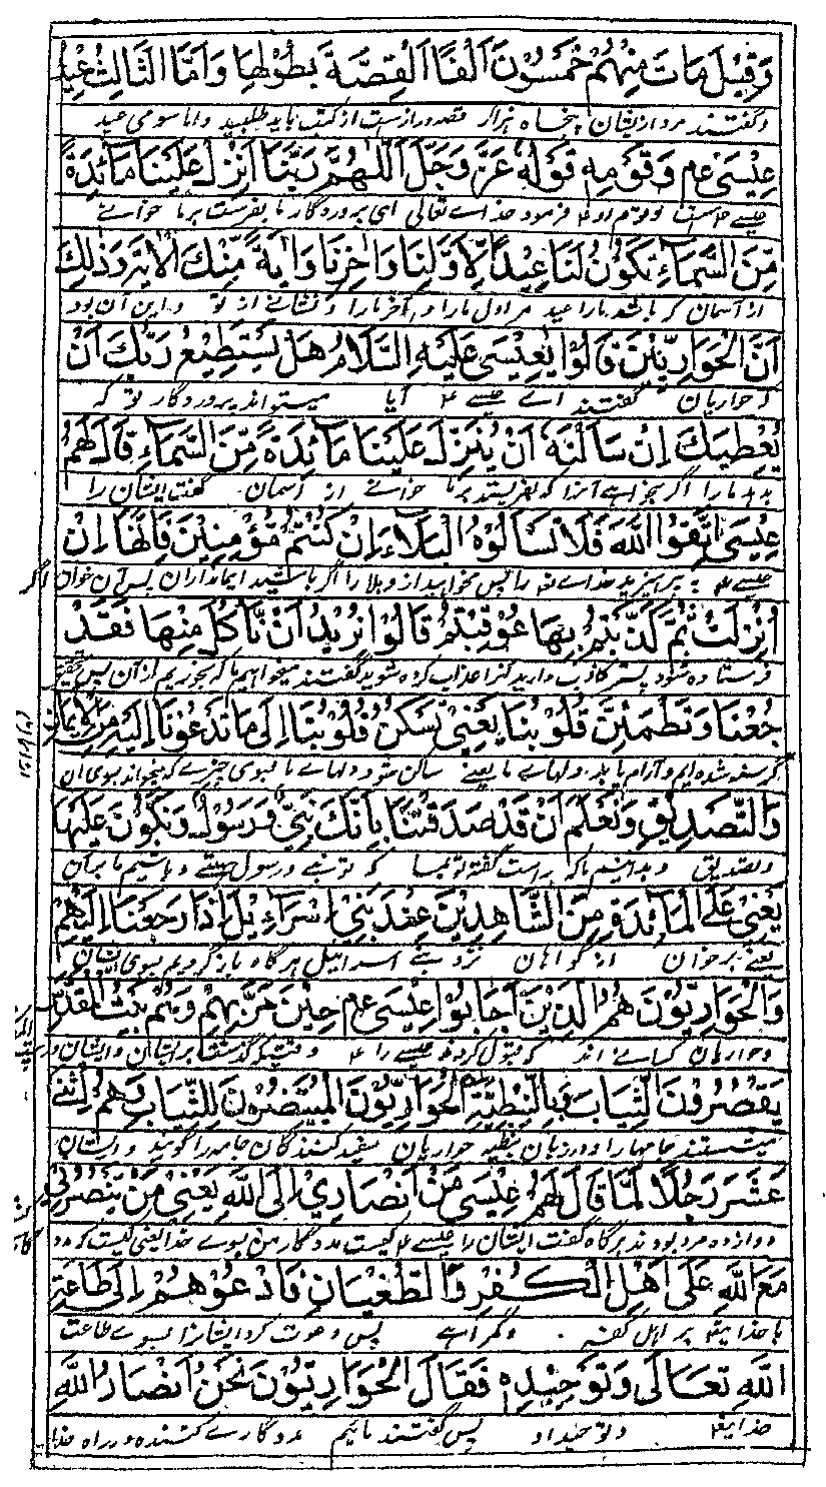 وَقِيْلَ مَاتَ مِنْهُمْ خَمْسُوْنَ اَلْفًا اَلْقِصَّةَ بِطُوْلِهَا وَاَمَّا الثَّالِثُ عِيْدُ
وگفتند مرد از ایشان پنجاه هزار قصه دراز ست از کتب باید طلبید واما سومی عید
عِيْسٰى عم وَقَوْمِهٖ قَوْلُهٗ عَزَّ وَجَلَّ اَللّٰهُمَّ رَبَّنَا اَنْزِلْ عَلَيْنَا مَائِدَةً
عیسے ست وقوم او فرمود خداے تعالی ای پروردگار ما بفرست بر ما خوانے
مِّنَ السَّمَآءِ تَكُوْنُ لَنَا عِيْدًا لِّاَوَّلِنَا وَاٰخِرِنَا وَاٰيَةً مِّنْكَ الْاٰيَةَ وَذٰلِكَ
از آسمان که باشد مارا عید مر اول مارا وآخر مارا ونشانے از تو واین آن بود
اَنَّ الْحَوَارِيِّيْنَ قَالُوْا يٰعِيْسٰى عَلَيْهِ السَّلَامُ هَلْ يَسْتَطِيْعُ رَبُّكَ اَنْ
که حواریان گفتند اے عیسے ۴ آیا میتواند پروردگار تو که
يُّعْطِيَكَ اِنْ سَاَلْتَهٗ اَنْ يُّنَزِّلَ عَلَيْنَا مَائِدَةً مِّنَ السَّمَآءِ قَالَ لَهُمْ
بدهد ترا اگر بخواهے آنرا که بفرستد بر ما خوانے از آسمان گفت ایشان را
عِيْسٰى اتَّقُوا اللّٰهَ فَلَا تَسْاَلُوْهُ الْبَلَآءَ اِنْ كُنْتُمْ مُّؤْمِنِيْنَ فَاِنَّهَا اِنْ
عیسے ۴ بپرهیزید خداے را پس مخواهید از و بلا را اگر باشید ایمانداران پس آن خوان اگر
اُنْزِلَتْ ثُمَّ كَذَّبْتُمْ بِهَا عُوْقِبْتُمْ قَالُوْا نُرِيْدُ اَنْ نَّاْكُلَ مِنْهَا فَقَدْ
فرستاده شود پستر کاذب دارید آنرا عذاب کرده شوید گفتند میخواهیم ما که بخوریم از آن پس
جُعْنَا وَتَطْمَئِنَّ قُلُوْبُنَا يَعْنِيْ تَسْكُنُ قُلُوْبُنَا اِلٰى مَا تَدْعُوْنَا اِلَيْهِ مِنَ الْاِيْمَانِ
گرسنه شده ایم وآرام یابد دلهاے ما یعنے ساکن شود دلهاے ما بسوی چیزے که میخواند بسوی آن
وَالتَّصْدِيْقِ وَنَعْلَمَ اَنْ قَدْ صَدَقْتَنَا بِاَنَّكَ نَبِيٌّ وَرَسُوْلٌ وَنَكُوْنَ عَلَيْهَا
وتصدیق وبدانیم ما که براست گفته تو بما که تو نبی ورسول هستے وباشیم ما بر آن
يَعْنِيْ عَلَى الْمَائِدَةِ مِنَ الشَّاهِدِيْنَ عِنْدَ بَنِيْ اِسْرَآءِيْلَ اِذَا رَجَعْنَا اِلَيْهِمْ
یعنے بر خوان از گواهان نزد بنے اسرائیل هرگاه باز گردیم بسوی ایشان
وَالْحَوَارِيُّوْنَ هُمُ الَّذِيْنَ اَجَابُوْا عِيْسٰى عم حِيْنَ مَرَّ بِهِمْ وَهُمْ بَيْتَ الْمُقَدَّسِ
وحواریان کسانے اند که قبول کردند عیسے را ۴ وقتیکه گذشت بر ایشان وایشان در
يَقْصُرُوْنَ الثِّيَابَ وَبِالنَّبْطِيَّةِ الْحَوَارِيُّوْنَ الْمُبَيِّضُوْنَ لِلثِّيَابِ وَهُمْ اِثْنٰى
میشستند جامها را ودر زبان نبطیه حواریان سفید کنندگان جامه را گویند وایشان
عَشَرَ رَجُلًا لَمَّا قَالَ لَهُمْ عِيْسٰى مَنْ اَنْصَارِيْ اِلَى اللّٰهِ يَعْنِيْ مَنْ يَّنْصُرُنِيْ
دوازده مرد بودند هرگاه گفت ایشان را عیسے ۴ کیست مددگار من بسوے خدا یعنی کیست که مدد
مَعَ اللّٰهِ عَلٰى اَهْلِ الْكُفْرِ وَالطُّغْيَانِ فَادْعُوْهُمْ اِلٰى طَاعَةِ
با خدا بر اهل کفر وگمراهے پس دعوت کرد ایشانرا بسوے طاعت
اللّٰهِ تَعَالٰى وَتَوْحِيْدِهٖ فَقَالَ الْحَوَارِيُّوْنَ نَحْنُ اَنْصَارُ اللّٰهِ
خداے وتوحید او پس گفتند مائیم مددگارے کننده در راه خدا